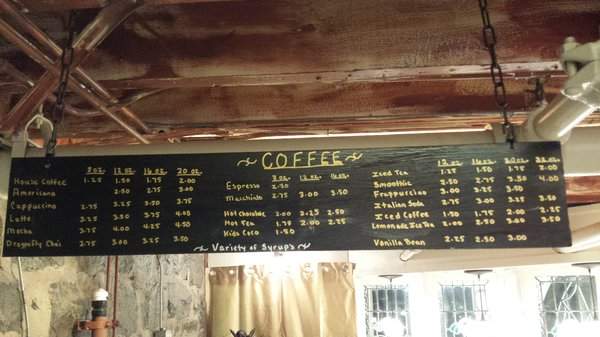 ~ COFFEE ~
8 oz. 12 oz. 16 oz. 20 oz.
House Coffee 1.25 1.50 1.75 2.00
Americano 2.50 2.75 3.00
Cappuccino 2.75 3.25 3.50 3.75
Latte 3.25 3.50 3.75 4.00
Mocha 3.75 4.00 4.25 4.50
Dragonfly Chai 2.75 3.00 3.25 3.50
8 oz. 12 oz. 16 oz.
Espresso 2.50
Macchiato 2.75 3.00 3.50
Hot Chocolate 2.00 2.25 2.50
Hot Tea 1.75 2.00 2.25
Kids Coco 1.50
~ Variety of Syrups ~
12 oz. 16 oz. 20 oz. 32 oz.
Iced Tea 1.25 1.50 1.75 2.00
Smoothie 2.50 2.75 3.50 4.00
Frappuccino 3.00 3.25 3.50
Italian Soda 2.75 3.00 3.25 3.50
Iced Coffee 1.50 1.75 2.00 2.25
Lemonade Ice Tea 2.00 2.50 3.00 3.50
Vanilla Bean 2.25 2.50 3.00